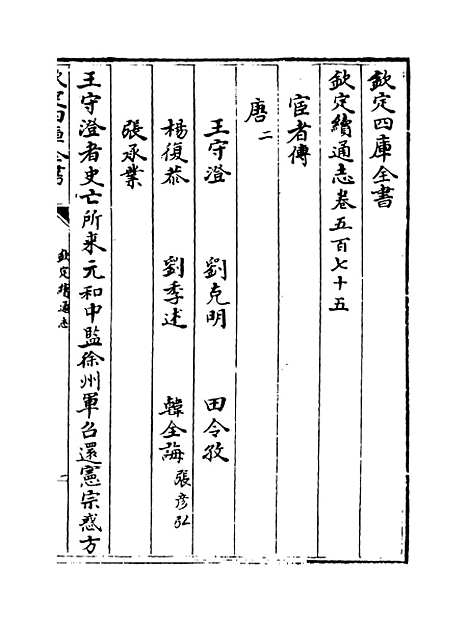 欽定四庫全書
欽定續通志卷五百七十五
宦者傳
唐二
王守澄 劉克明 田令孜
楊復恭 劉季述 韓全誨張彥弘
張承業
王守澄者史亡所来元和中監徐州軍召還憲宗惑方
欽定四庫全書
欽定續通志
一